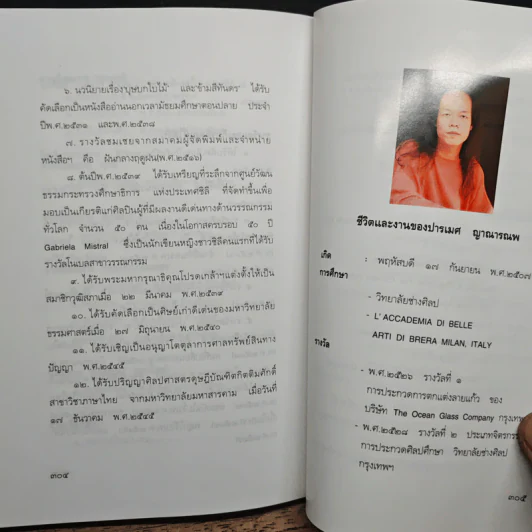 ๖. นวนิยายเรื่อง"บุษบกใบไม้" และ"ข้ามสีทันดร" ได้รับ
คัดเลือกเป็นหนังสืออ่านนอกเวลามัธยมศึกษาตอนปลาย ประจำ
ปีพ.ศ.๒๕๓๑ และพ.ศ.๒๕๓๘
๗. รางวัลชมเชยจากสมาคมผู้จัดพิมพ์และจำหน่าย
หนังสือฯ คือ ฝันกลางฤดูฝน(พ.ศ.๒๕๑๖)
๘. ต้นปีพ.ศ.๒๕๓๙ ได้รับเหรียญที่ระลึกจากศูนย์วัฒน
ธรรมกระทรวงศึกษาธิการ แห่งประเทศชิลี ที่จัดทำขึ้นเพื่อ
มอบเป็นเกียรติแก่ศิลปินผู้ที่มีผลงานดีเด่นทางด้านวรรณกรรม
ทั่วโลก จำนวน ๕๐ คน เนื่องในโอกาสครบรอบ ๕๐ ปี
Gabriela Mistral ซึ่งเป็นนักเขียนหญิงชาวชิลีคนแรกที่ได้รับ
รางวัลโนเบลสาขาวรรณกรรม
๙. ได้รับพระมหากรุณาธิคุณโปรดเกล้าฯแต่งตั้งให้เป็น
สมาชิกวุฒิสภาเมื่อ ๒๒ มีนาคม พ.ศ.๒๕๓๙
๑๐. ได้รับคัดเลือกเป็นศิษย์เก่าดีเด่นของมหาวิทยาลัย
ธรรมศาสตร์เมื่อ ๒๗ มิถุนายน พ.ศ.๒๕๔๐
๑๑. ได้รับเชิญเป็นอนุญาโตตุลาการศาลทรัพย์สินทาง
ปัญญา พ.ศ.๒๕๔๕
๑๒. ได้รับปริญญาศิลปศาสตรดุษฎีบัณฑิตกิตติมศักดิ์
สาขาวิชาภาษาไทย จากมหาวิทยาลัยมหาสารคาม เมื่อวันที่
๑๗ ธันวาคม พ.ศ.๒๕๔๕
๓๐๔
ชีวิตและงานของปารเมศ ญาณารณพ
เกิด : พฤหัสบดี ๑๗ กันยายน พ.ศ.๒๕๐๗
การศึกษา
- วิทยาลัยช่างศิลป
- L' ACCADEMIA DI BELLE
ARTI DI BRERA MILAN, ITALY
รางวัล
- พ.ศ.๒๕๒๖ รางวัลที่ ๑
การประกวดการตกแต่งลายแก้ว ของ
บริษัท The Ocean Glass Company กรุงเทพ
- พ.ศ.๒๕๒๘ รางวัลที่ ๒ ประเภทจิตรกรรม
การประกวดศิลปศึกษา วิทยาลัยช่างศิลป
กรุงเทพฯ
๓๐๕